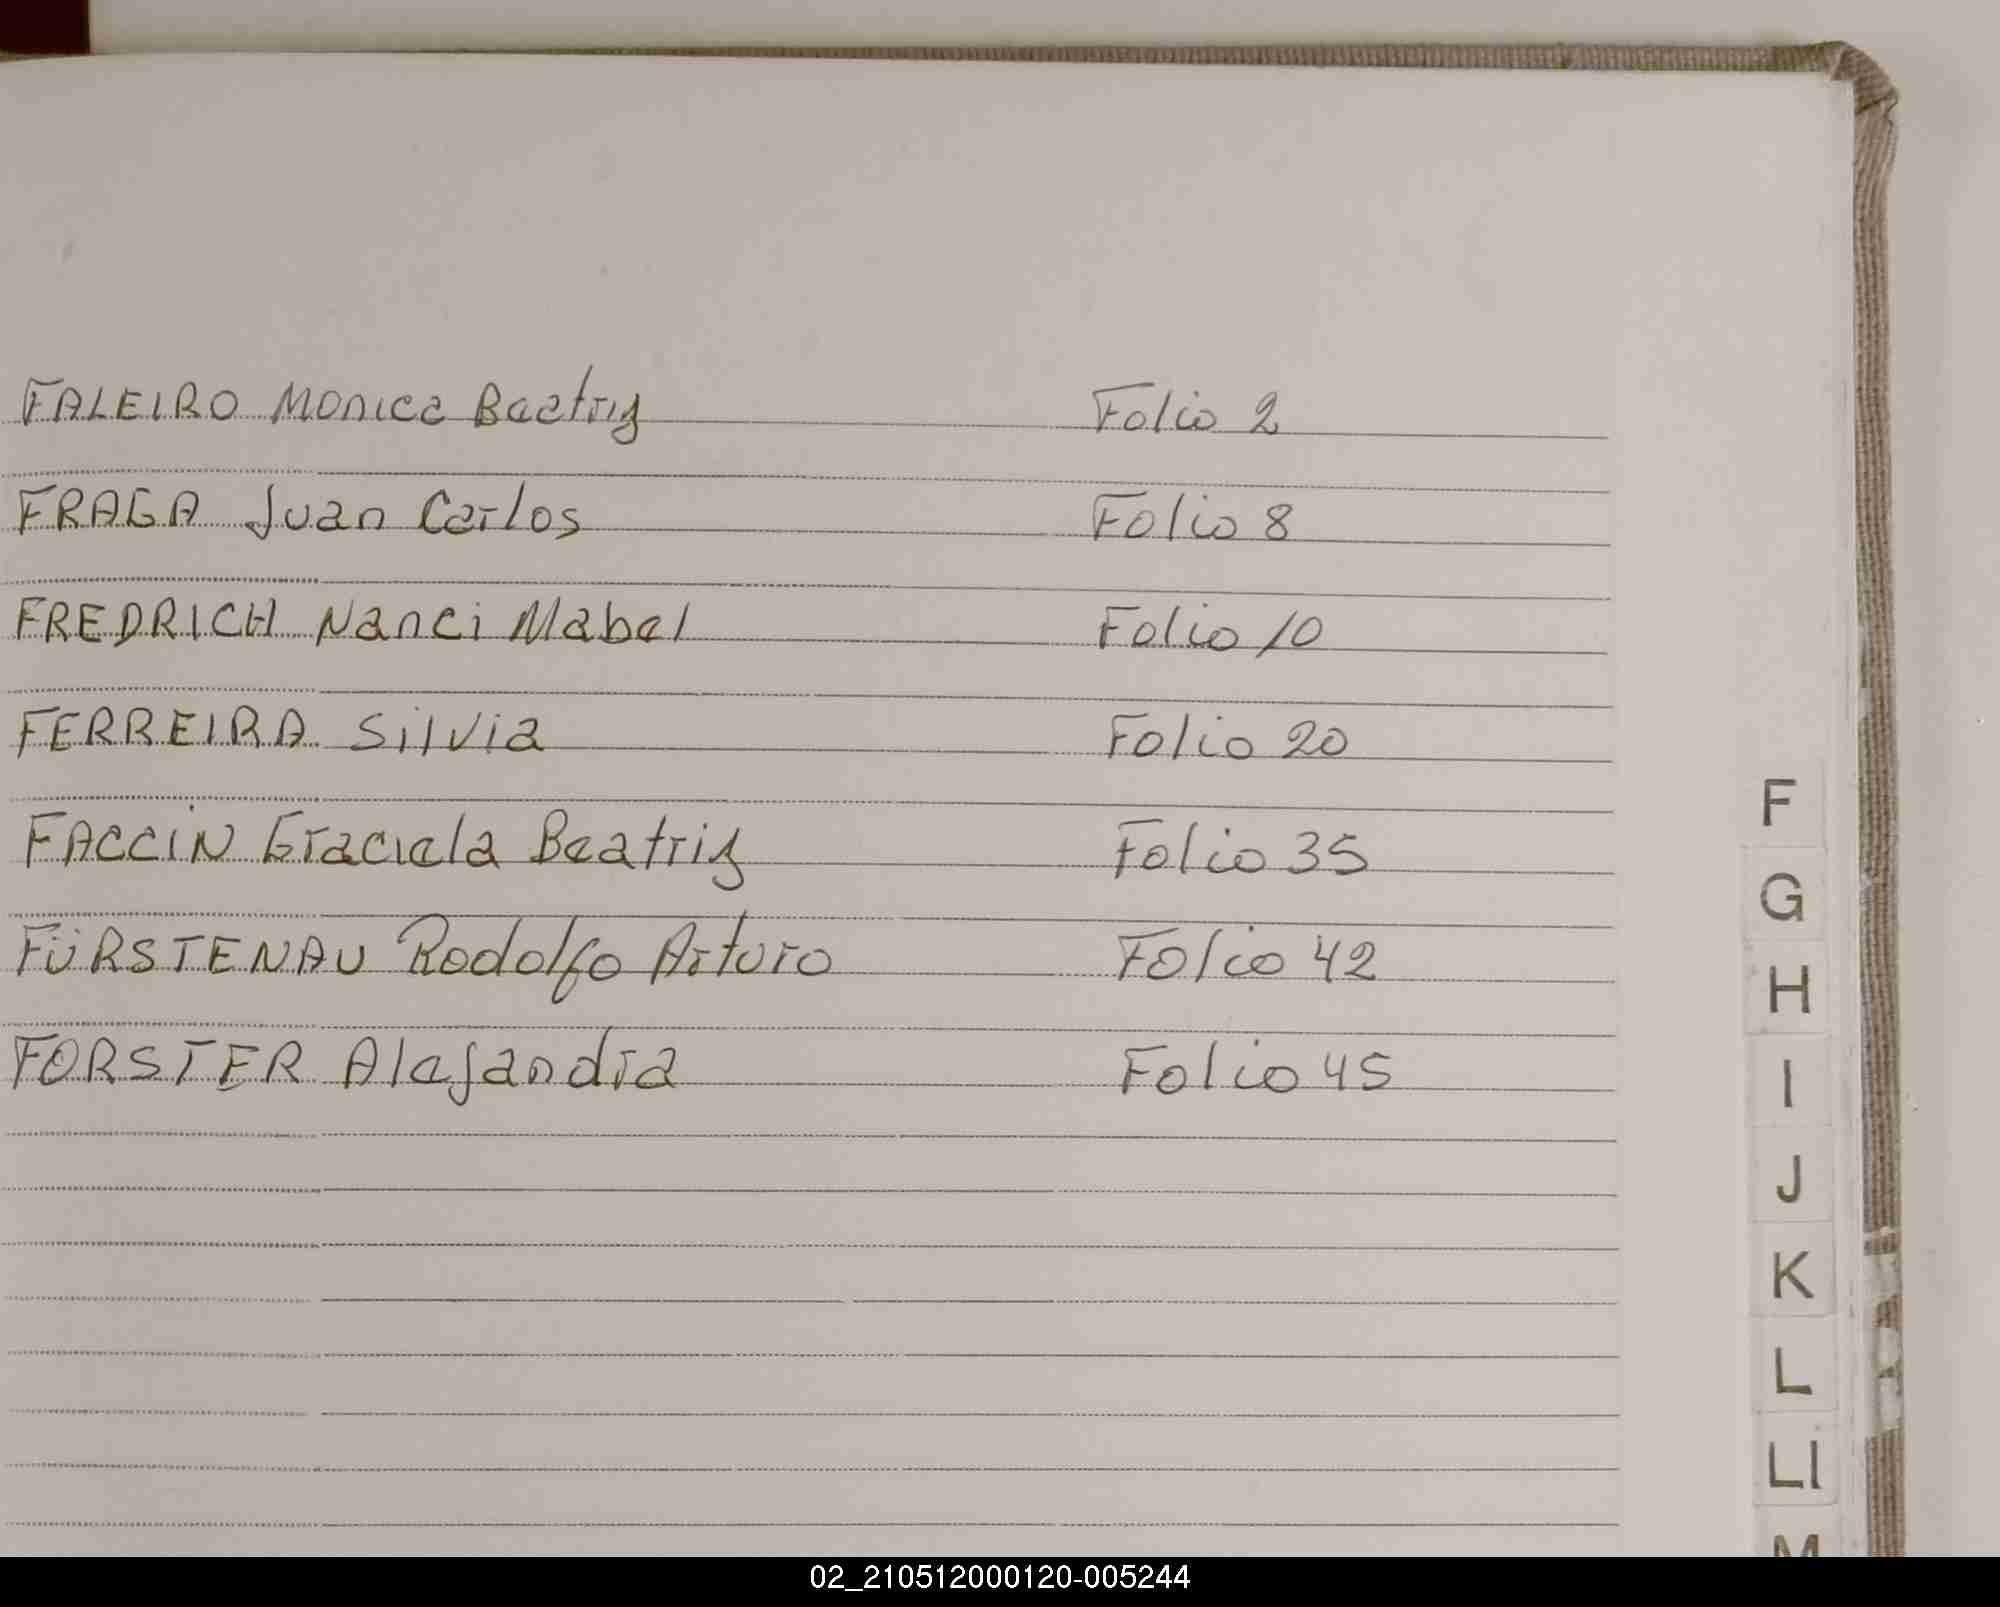 FALEIRO Monica Beatriz Folio 2
FRAGA Juan Carlos Folio 8
FREDRICH Nanci Mabel Folio 10
FERREIRA Silvia Folio 20
FACCIN Graciela Beatriz Folio 35
FÜRSTENAU Rodolfo Arturo Folio 42
FORSTER Alejandra Folio 45
F
G
H
I
J
K
L
Ll
M
02_210512000120-005244